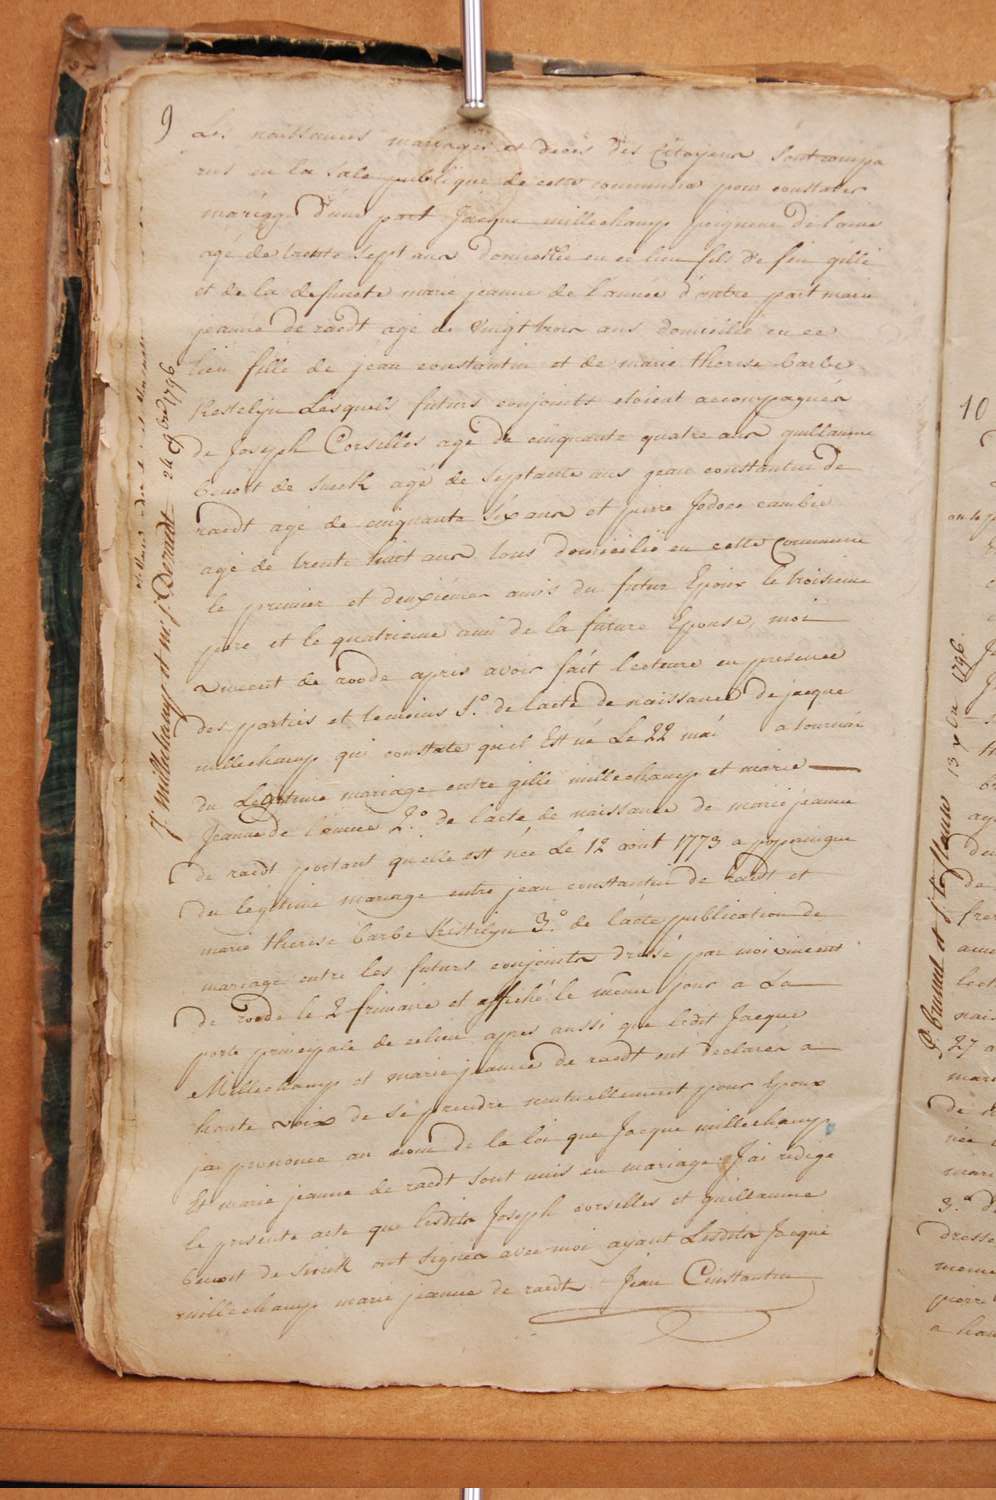 9
Les naissances mariages et deces des Citoyens sont compa
rus en la sale publique de cette commune pour constater
mariage d'une part Jacque millechamp peigneur de laine
agé de trente sept ans domicilié en ce lieu fils de feu gille
et de la defuncte marie jeanne de l'annee d'autre part marie
jeanne de raedt agé de vingt trois ans domicilié en ce
lieu fille de jean constantin et de marie therese barbe
Kestelijn Lesquels futurs conjoints etoient accompagnés
de Joseph Corselles agé de cinquante quatre ans guillaume
benoit de smck agé de septante ans jean constantin de
raedt agé de cinquante six ans et pierre Jodoce cambie
agé de trente huit ans tous domiciliés en cette Commune
le premier et deuxiémes amis du futur Epoux le troisieme
pere et le quatrieme ami de la future Epouse, moi
vincent de roode apris avoir fait lecture en presence
des parties et temoins 1.º de l'acte de naissance de jacque
millechamp qui constate qu'il Est né Le 22 mai a tournai
du Legitime mariage entre gille millechamp et marie
Jeanne de l'annee 2.º de l'acte de naissance de marie jeanne
de raedt portant qu'elle est née Le 12 aout 1773 a poperingue
du légitime mariage entre jean constantin de raedt et
marie therese barbe Kestelijn 3.º de l'acte publication de
mariage entre les futurs conjoints dressé par moi vincent
de roode le 2 frimaire et affiché le même jour a La
porte principale de celieu apres aussi que ledit Jacque
Millechamp et marie jeanne de raedt ont declarer a
haute voix de se prendre mutuellement pour Epoux
jai prononce au nom de la loi que Jacque millechamp
Et marie jeanne de raedt sont unis en mariage J'ai rédigé
le presente acte que lesdits Joseph corselles et guillaume
benoit de smck ont signer avec moi ayant Lesdits Jacque
millechamp marie jeanne de raedt Jean Constantin
J. Millechamp et m. j. Deraedt 24 9bre 1796
10
P. et J. 13 xbre 1796
27 a
3.º d
de
dresse
meme
pierre
a hau